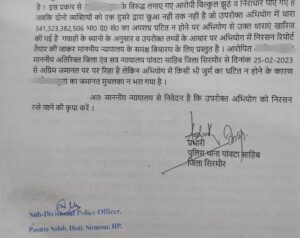 है। इस प्रकार से के विरुद्ध लगाए गए आरोप बिल्कुल झुठे व निराधार पाए गए है
जबकि दोनो व्यक्तियों को एक दुसरे द्वारा छुआ नही तक नही है जो उपरोक्त अभियोग में धारा
341,323,382,506 भा0 द0 स0 का अपराध घटित न होने पर अभियोग से उक्त धाराएं खारिज
की गई है गवाहों के ब्यानो के अनुसार व उपरोक्त तथ्यों के आधार पर अभियोग में निरसन रिपोर्ट
तैयार की जाकर माननीय न्यायालय के समक्ष विचारण के लिए प्रस्तुत है। आरोपित
माननीय अतिरिक्त जिला एंव सत्र न्यायालय पांवटा साहिब जिला सिरमौर से दिनांक 25-02-2023
से अग्रिम जमानत पर पर रिहा है लेकिन अभियोग में किसी भी जुर्म का घटित न होने के कारण
का जमानत मुचलका न भरा गया है।
अतः माननीय न्यायालय से निवेदन है कि उपरोक्त अभियोग को निरसन
रखे जाने की कृपा करें।
प्रभारी
पुलिस थाना पांवटा साहिब
जिला सिरमौर
Sub-Divisional Police Officer,
Paonta Sahib, Distt. Sirmour, HP.